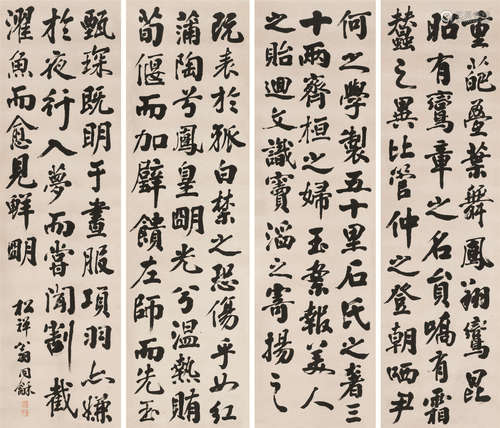 重葩疊葉舞鳳翔鸞昆
昭有鸞章之名員嶠有霜
蠶之異比管仲之登朝哂尹
何之學製五十里石氏之奢三
十兩齊桓之歸玉案報美人
之貽迴文識竇滔之寄揚之
既表於狐白禁之恐傷乎女紅
蒲陶兮鳳皇明光兮溫熱賄
荀偃而加璧饋左師而先玉
甄琛既明于晝服項羽亦嫌
於夜行入夢而嘗聞割截
濯魚而愈見鮮明
松禪翁同龢